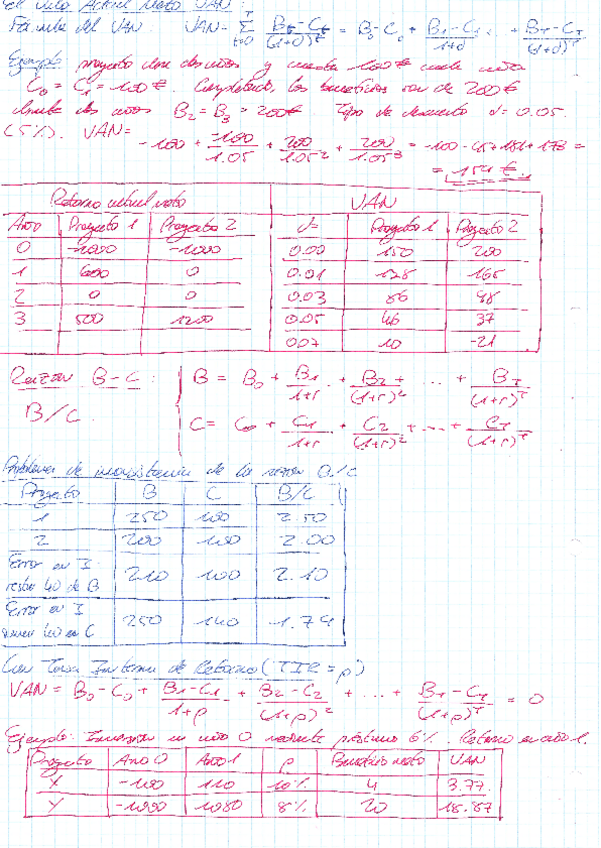 El Valor Actual Neto VAN:
Fórmula del VAN: VAN = Σ (t=0, T) (Bt - Ct)/(1+d)^t = B0 - C0 + (B1 - C1)/(1+d) + ... + (BT - CT)/(1+d)^T
Ejemplo: proyecto dura dos años y cuesta 100€ cada año
C0 = C1 = 100€. Completado, los beneficios son de 200€
durante dos años B2 = B3 = 200€. Tipo de descuento d = 0.05.
(5%). VAN =
-100 + -100/1.05 + 200/1.05² + 200/1.05³ = -100 - 95 + 181 + 173 =
= 159 €.
Retorno actual neto | VAN
Año | Proyecto 1 | Proyecto 2 | d= | Proyecto 1 | Proyecto 2
0 | -1000 | -1000 | 0.00 | 150 | 200
1 | 600 | 0 | 0.01 | 128 | 165
2 | 0 | 0 | 0.03 | 86 | 98
3 | 500 | 1200 | 0.05 | 46 | 37
0.07 | 10 | -21
Razón B-C: B = B0 + B1/(1+r) + B2/(1+r)² + ... + BT/(1+r)^T
B/C. C = C0 + C1/(1+r) + C2/(1+r)² + ... + CT/(1+r)^T
Problema de inconsistencia de la razón B/C
Proyecto | B | C | B/C
1 | 250 | 100 | 2.50
2 | 200 | 100 | 2.00
Error en I
restar 40 de B | 210 | 100 | 2.10
Error en I
sumar 40 en C | 250 | 140 | 1.79
Tasa Interna de Retorno (TIR = ρ)
VAN = B0 - C0 + (B1 - C1)/(1+ρ) + (B2 - C2)/(1+ρ)² + ... + (BT - CT)/(1+ρ)^T = 0
Ejemplo: Inversión en año 0 préstamo 6%. Retorno en año 1.
Proyecto | Año 0 | Año 1 | ρ | Beneficio neto | VAN
X | -100 | 110 | 10% | 4 | 3.77
Y | -1000 | 1080 | 8% | 20 | 18.87